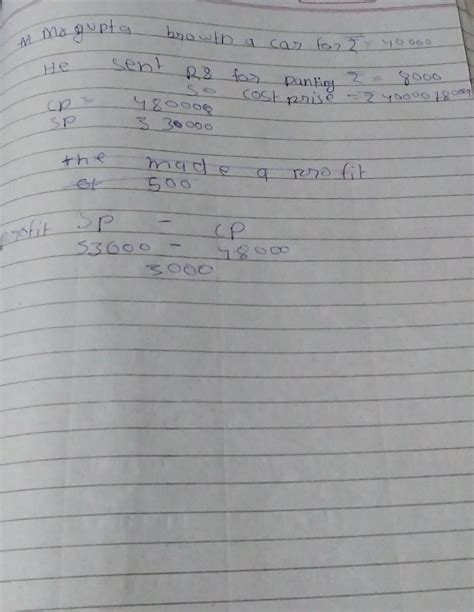 M Mr gupta browth a car for ₹ = 40000
He sent RS for panting ₹ = 8000
so cost prise = ₹ 40000+8000
CP = 480000
SP 3 30000
the made a profit
of 500
profit SP - CP
53600 - 48000
3000